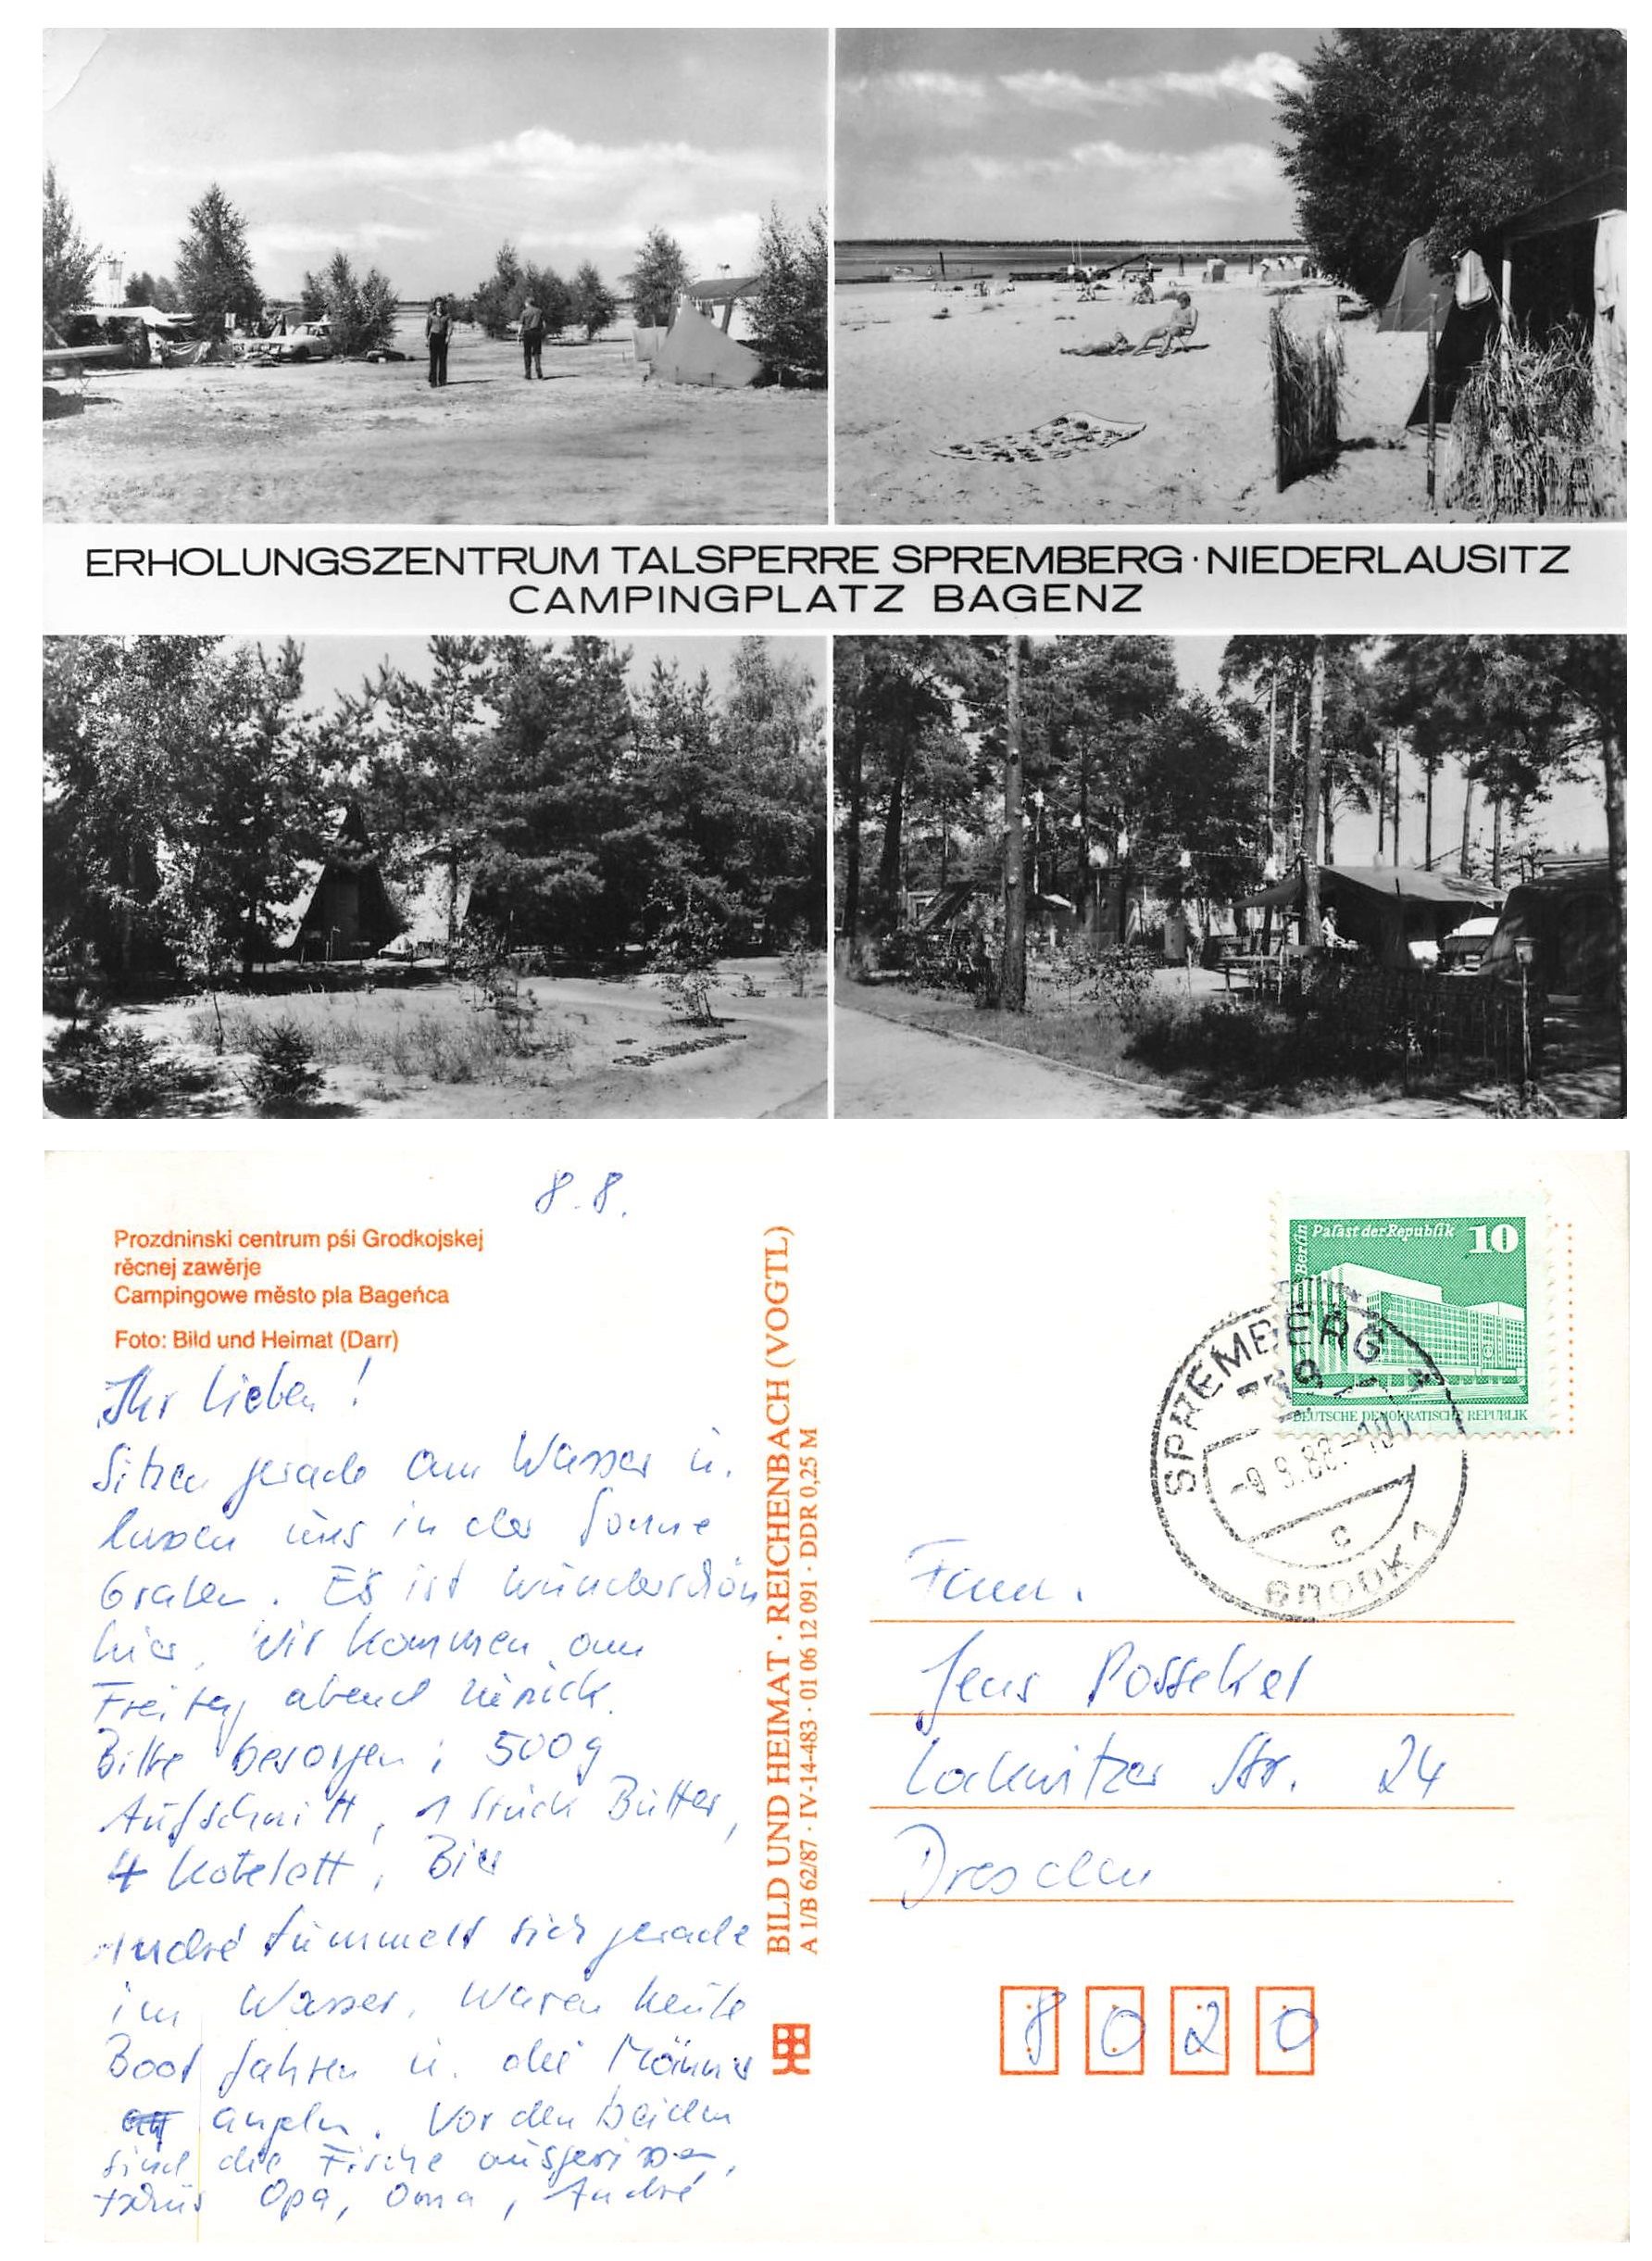 ERHOLUNGSZENTRUM TALSPERRE SPREMBERG · NIEDERLAUSITZ
CAMPINGPLATZ BAGENZ
8.8.
Prozdninski centrum pśi Grodkojskej
rěcnej zawěrje
Campingowe město pla Bageńca
Foto: Bild und Heimat (Darr)
Ihr Lieben!
Sitzen gerade am Wasser u.
lassen uns in der Sonne
braten. Es ist wunderschön
hier, wir kommen am
Freitag abend zurück.
Bitte besorgen: 500g
Aufschnitt, 1 Stück Butter,
4 Kotelett, Bier
André tummelt sich gerade
im Wasser. Waren heute
Boot fahren u. die Männer
angeln. Vor den beiden
sind die Fische ausgerissen,
Tschüs Opa, Oma, André
BILD UND HEIMAT · REICHENBACH (VOGTL)
A 1/B 62/87 · IV-14-483 · 01 06 12 091 · DDR 0,25 M
Berlin
Palast der Republik 10
DEUTSCHE DEMOKRATISCHE REPUBLIK
SPREMBERG 1
c
GRODK 1
Fam.
Jens Possekel
Lockwitzer Str. 24
Dresden
8020